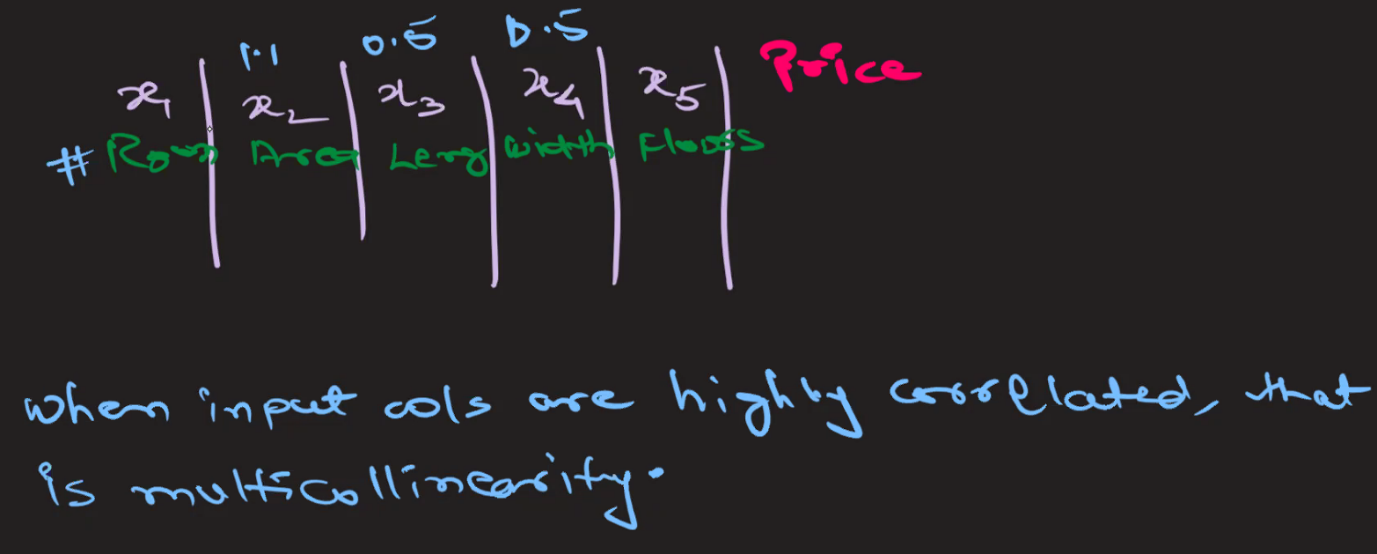 1.1 0.5 0.5
x1 x2 x3 x4 x5 Price
# Room Area Leng width Floors
when input cols are highly correlated, that
is multicollinearity.